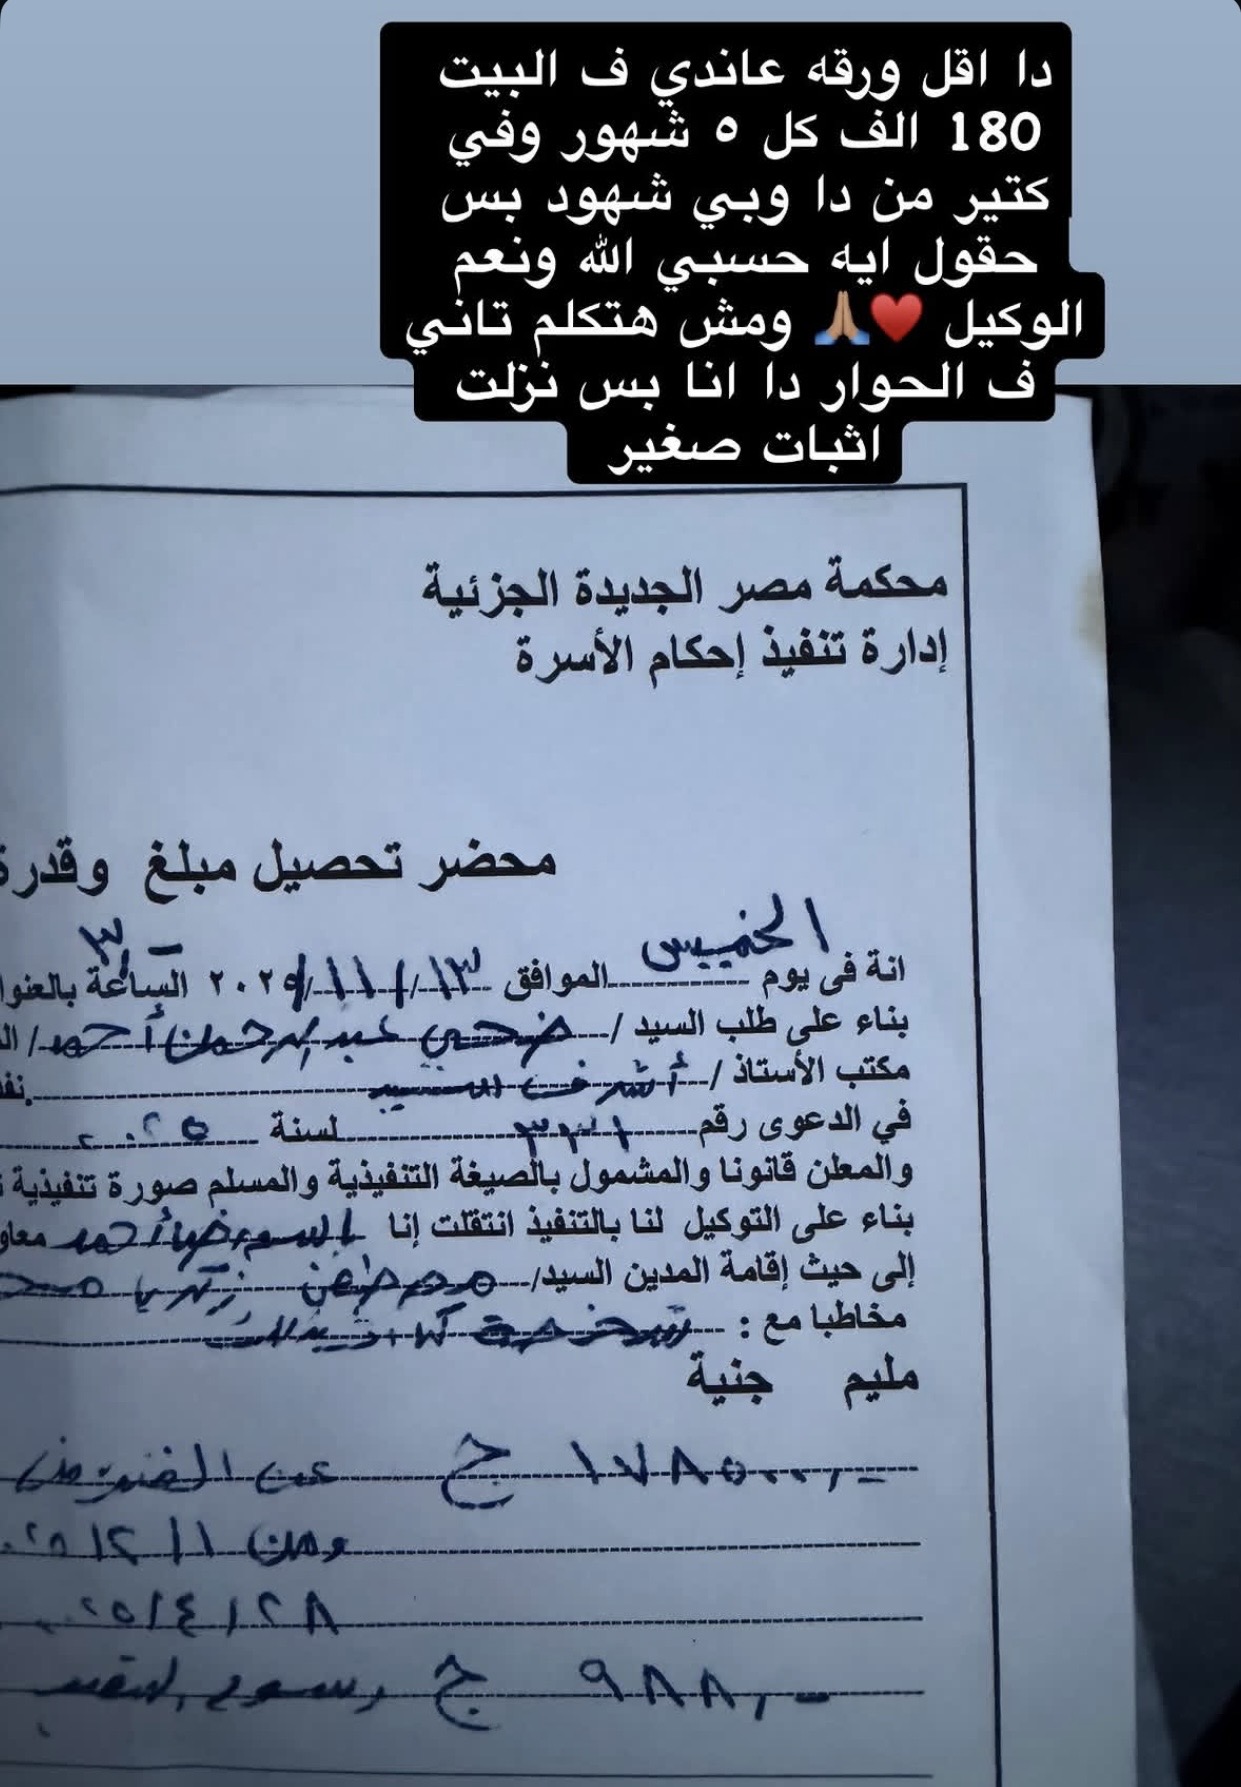 دا اقل ورقه عاندي ف البيت
180 الف كل ٥ شهور وفي
كتير من دا وبي شهود بس
حقول ايه حسبي الله ونعم
الوكيل ❤️🙏🏽 ومش هتكلم تاني
ف الحوار دا انا بس نزلت
اثبات صغير
محكمة مصر الجديدة الجزئية
إدارة تنفيذ إحكام الأسرة
محضر تحصيل مبلغ وقدرة
انة فى يوم الخميس الموافق ١٣/١١/٢٠٢٥ الساعة ٣ بالعنوا
بناء على طلب السيد / ضحي عبد الرحمن أحمد / ال
مكتب الأستاذ / أشرف السيد نف
في الدعوى رقم ٣٣١ لسنة ٢٠٢٥
والمعلن قانونا والمشمول بالصيغة التنفيذية والمسلم صورة تنفيذية
بناء على التوكيل لنا بالتنفيذ انتقلت إنا أحمد معاو
إلى حيث إقامة المدين السيد/ زكريا
مخاطبا مع :
مليم جنية
١٧٨٥٠٠,- ج عن
ومن
٢٠٢٥/٤/٢٨
٩٨٨,- ج رسوم